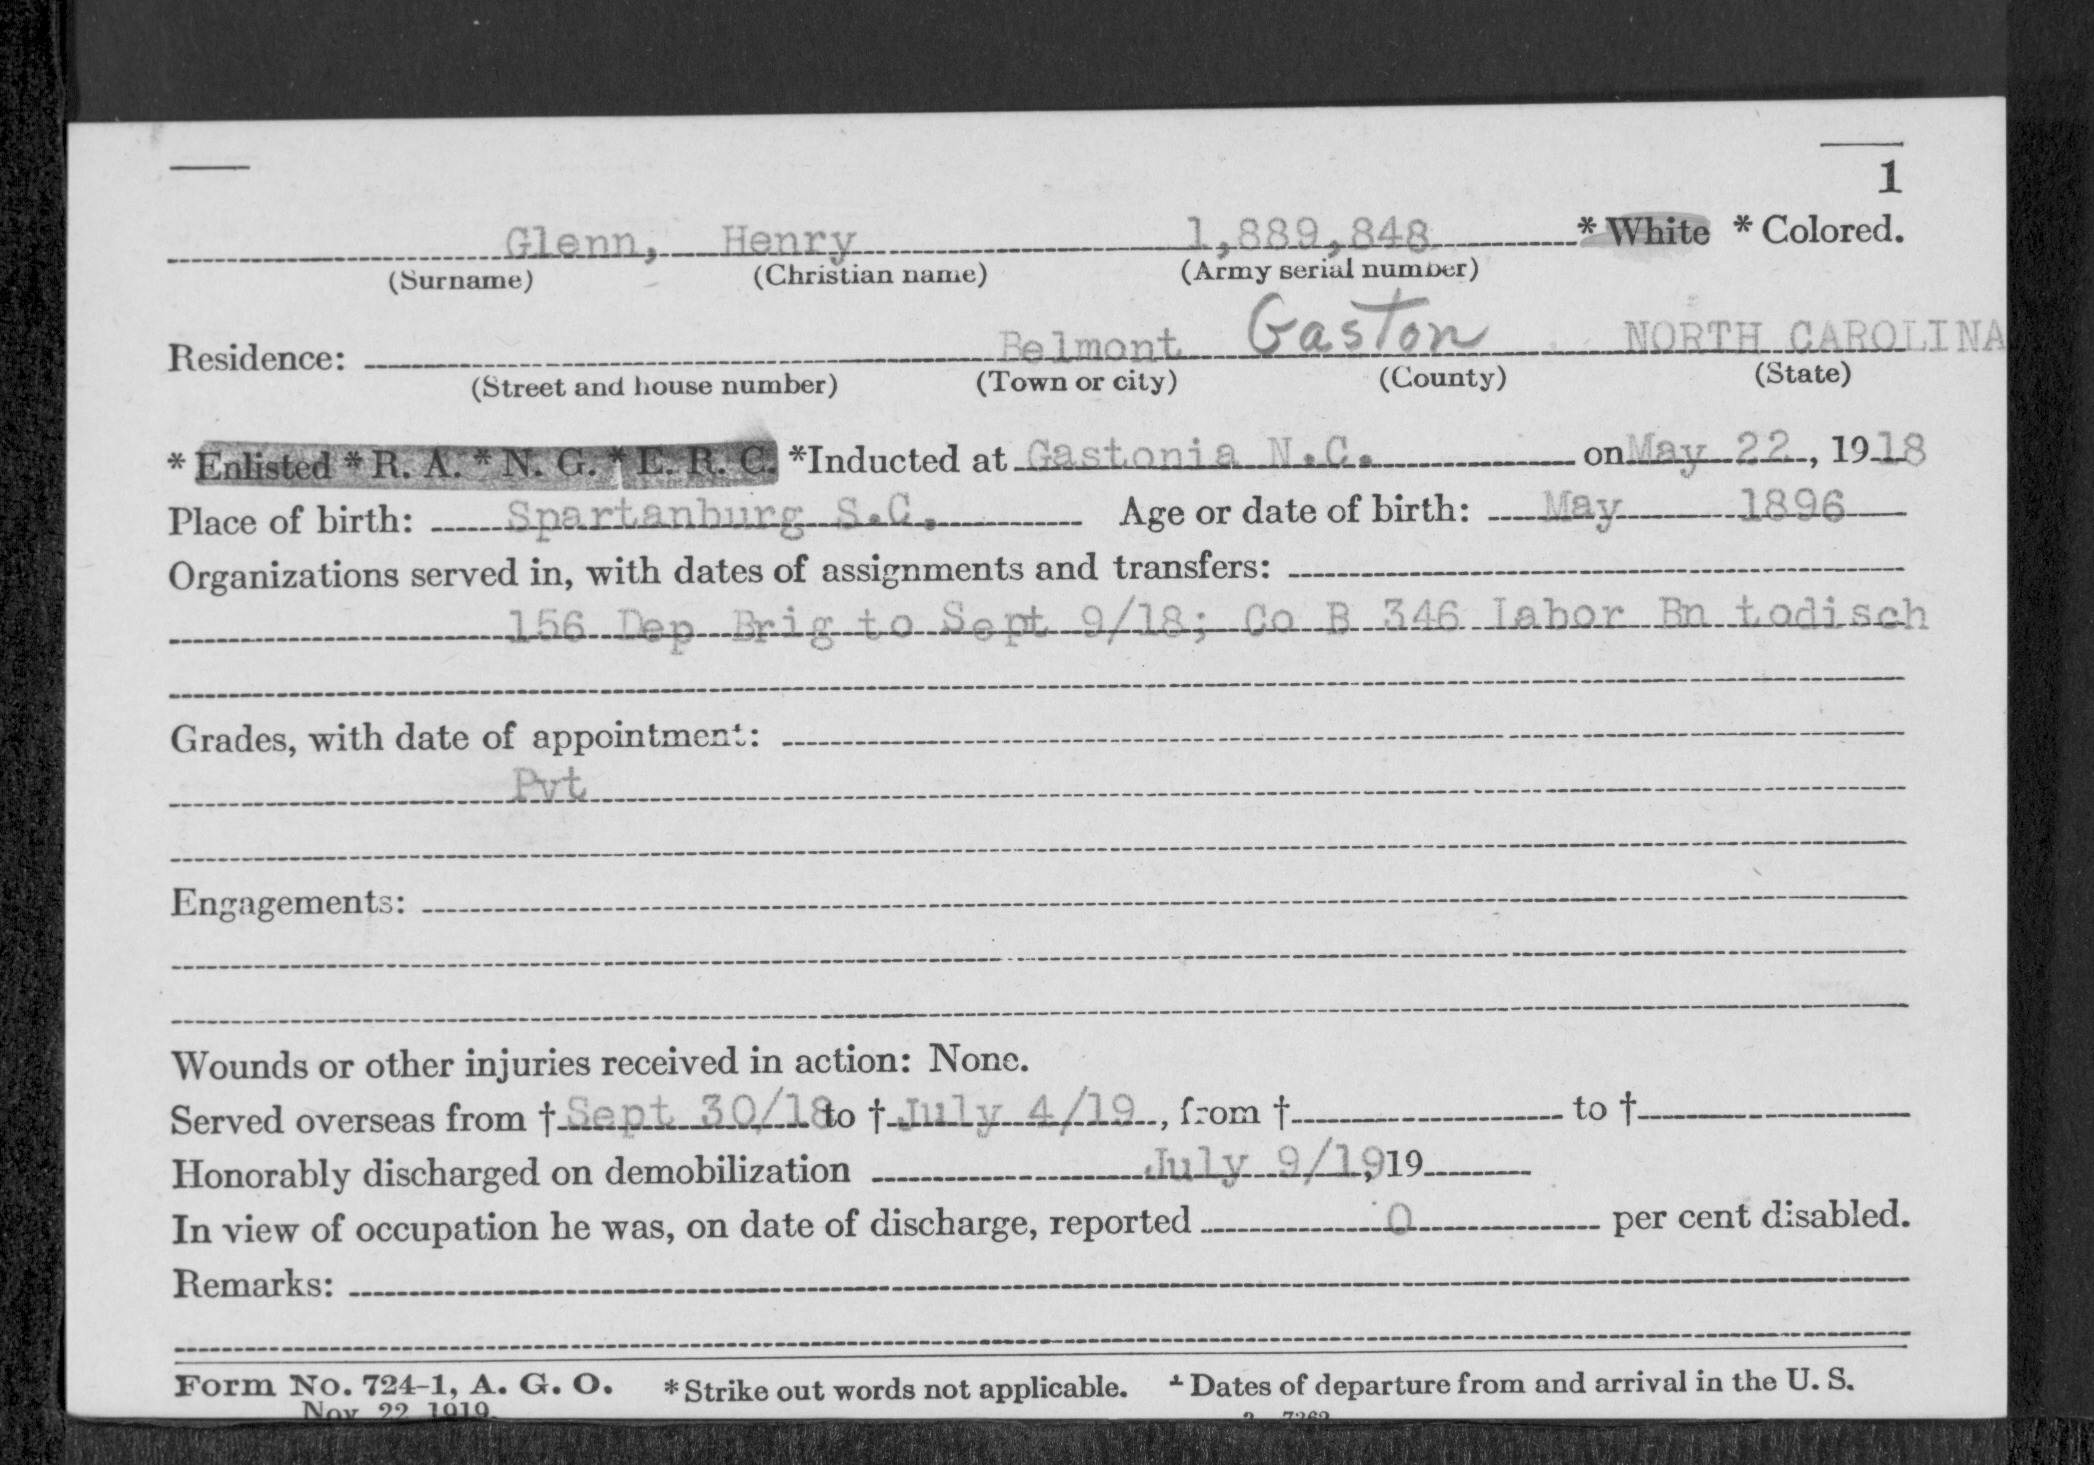 1
Glenn, Henry 1,889,848 * White * Colored.
(Surname) (Christian name) (Army serial number)
Residence: Belmont Gaston NORTH CAROLINA
(Street and house number) (Town or city) (County) (State)
* Enlisted * R. A. * N. G. * E. R. C. *Inducted at Gastonia N.C. on May 22, 1918
Place of birth: Spartanburg S.C. Age or date of birth: May 1896
Organizations served in, with dates of assignments and transfers:
156 Dep Brig to Sept 9/18; Co B 346 Labor Bn todisch
Grades, with date of appointment:
Pvt
Engagements:
Wounds or other injuries received in action: None.
Served overseas from † Sept 30/18 to † July 4/19, from † to †
Honorably discharged on demobilization July 9/19, 19
In view of occupation he was, on date of discharge, reported 0 per cent disabled.
Remarks:
Form No. 724-1, A. G. O. * Strike out words not applicable. † Dates of departure from and arrival in the U. S.
Nov. 22, 1919.